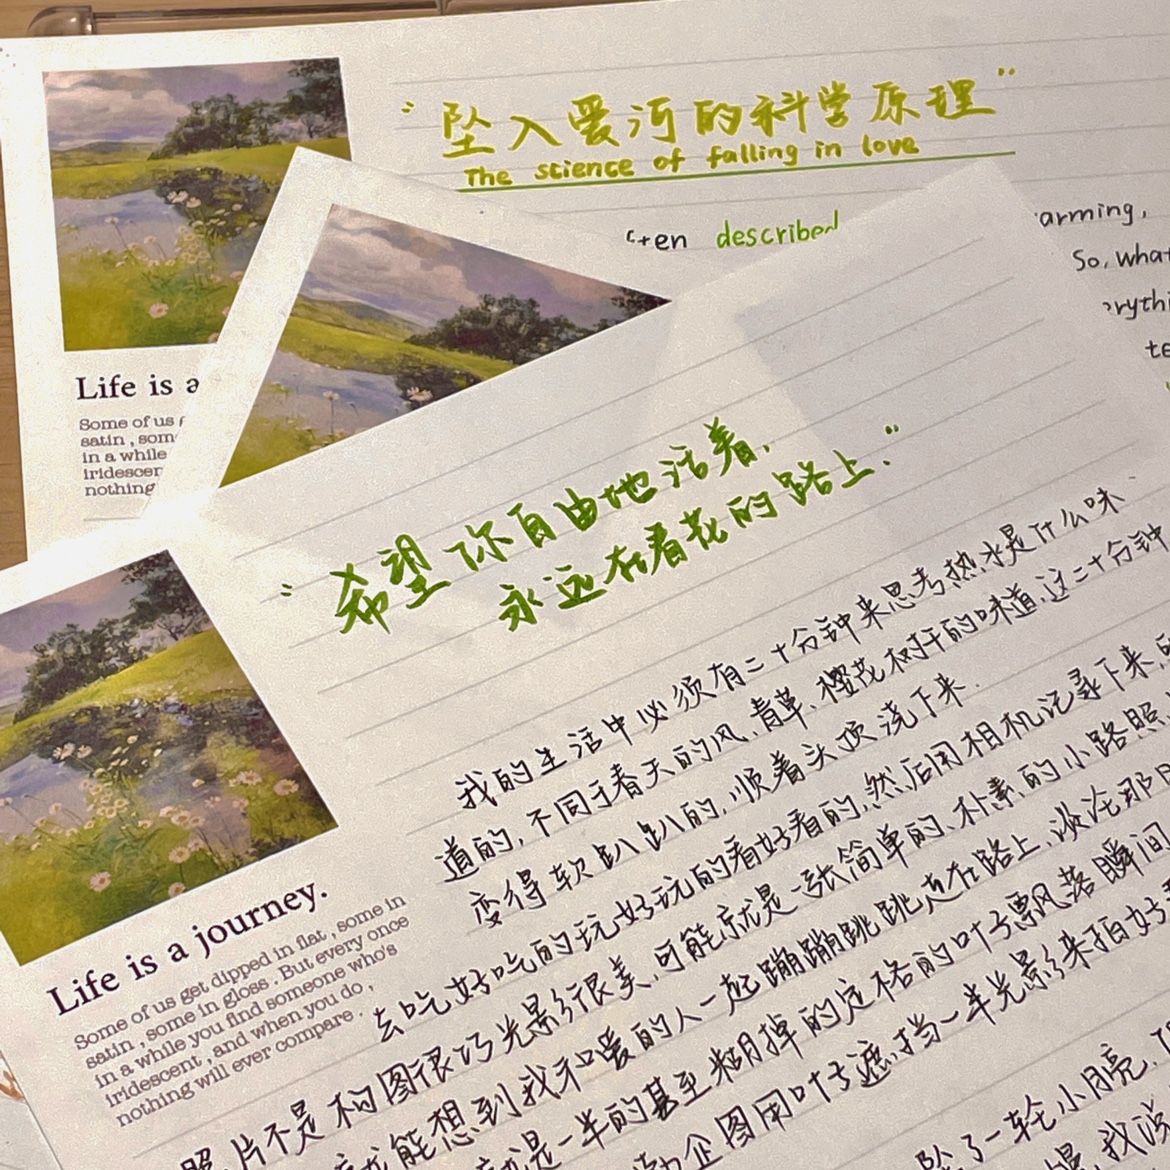 "坠入爱河的科学原理"
The science of falling in love
described
arming,
So, what
Life is a
Some of us
satin , som
in a while
iridescen
nothing
"希望你自由地活着,
永远在看花的路上."
我的生活中必须有二十分钟来思考热水是什么味
道的,不同于春天的风、青草、樱花树干的味道,这二十分钟
变得软趴趴的,顺着头顶浇下来.
去吃好吃的玩好玩的看好看的,然后用相机记录下来,
照片不是构图很巧光影很美,可能就是一张简单的、朴素的小路照
就能想到我和爱的人一起蹦蹦跳跳走在路上、淡淡那
就是一半的甚至糊掉的定格的叶子飘落瞬间
企图用叶子遮挡一半光影来拍好
了一轮小月亮,
我说
Life is a journey.
Some of us get dipped in flat , some in
satin , some in gloss . But every once
in a while you find someone who's
iridescent , and when you do ,
nothing will ever compare .